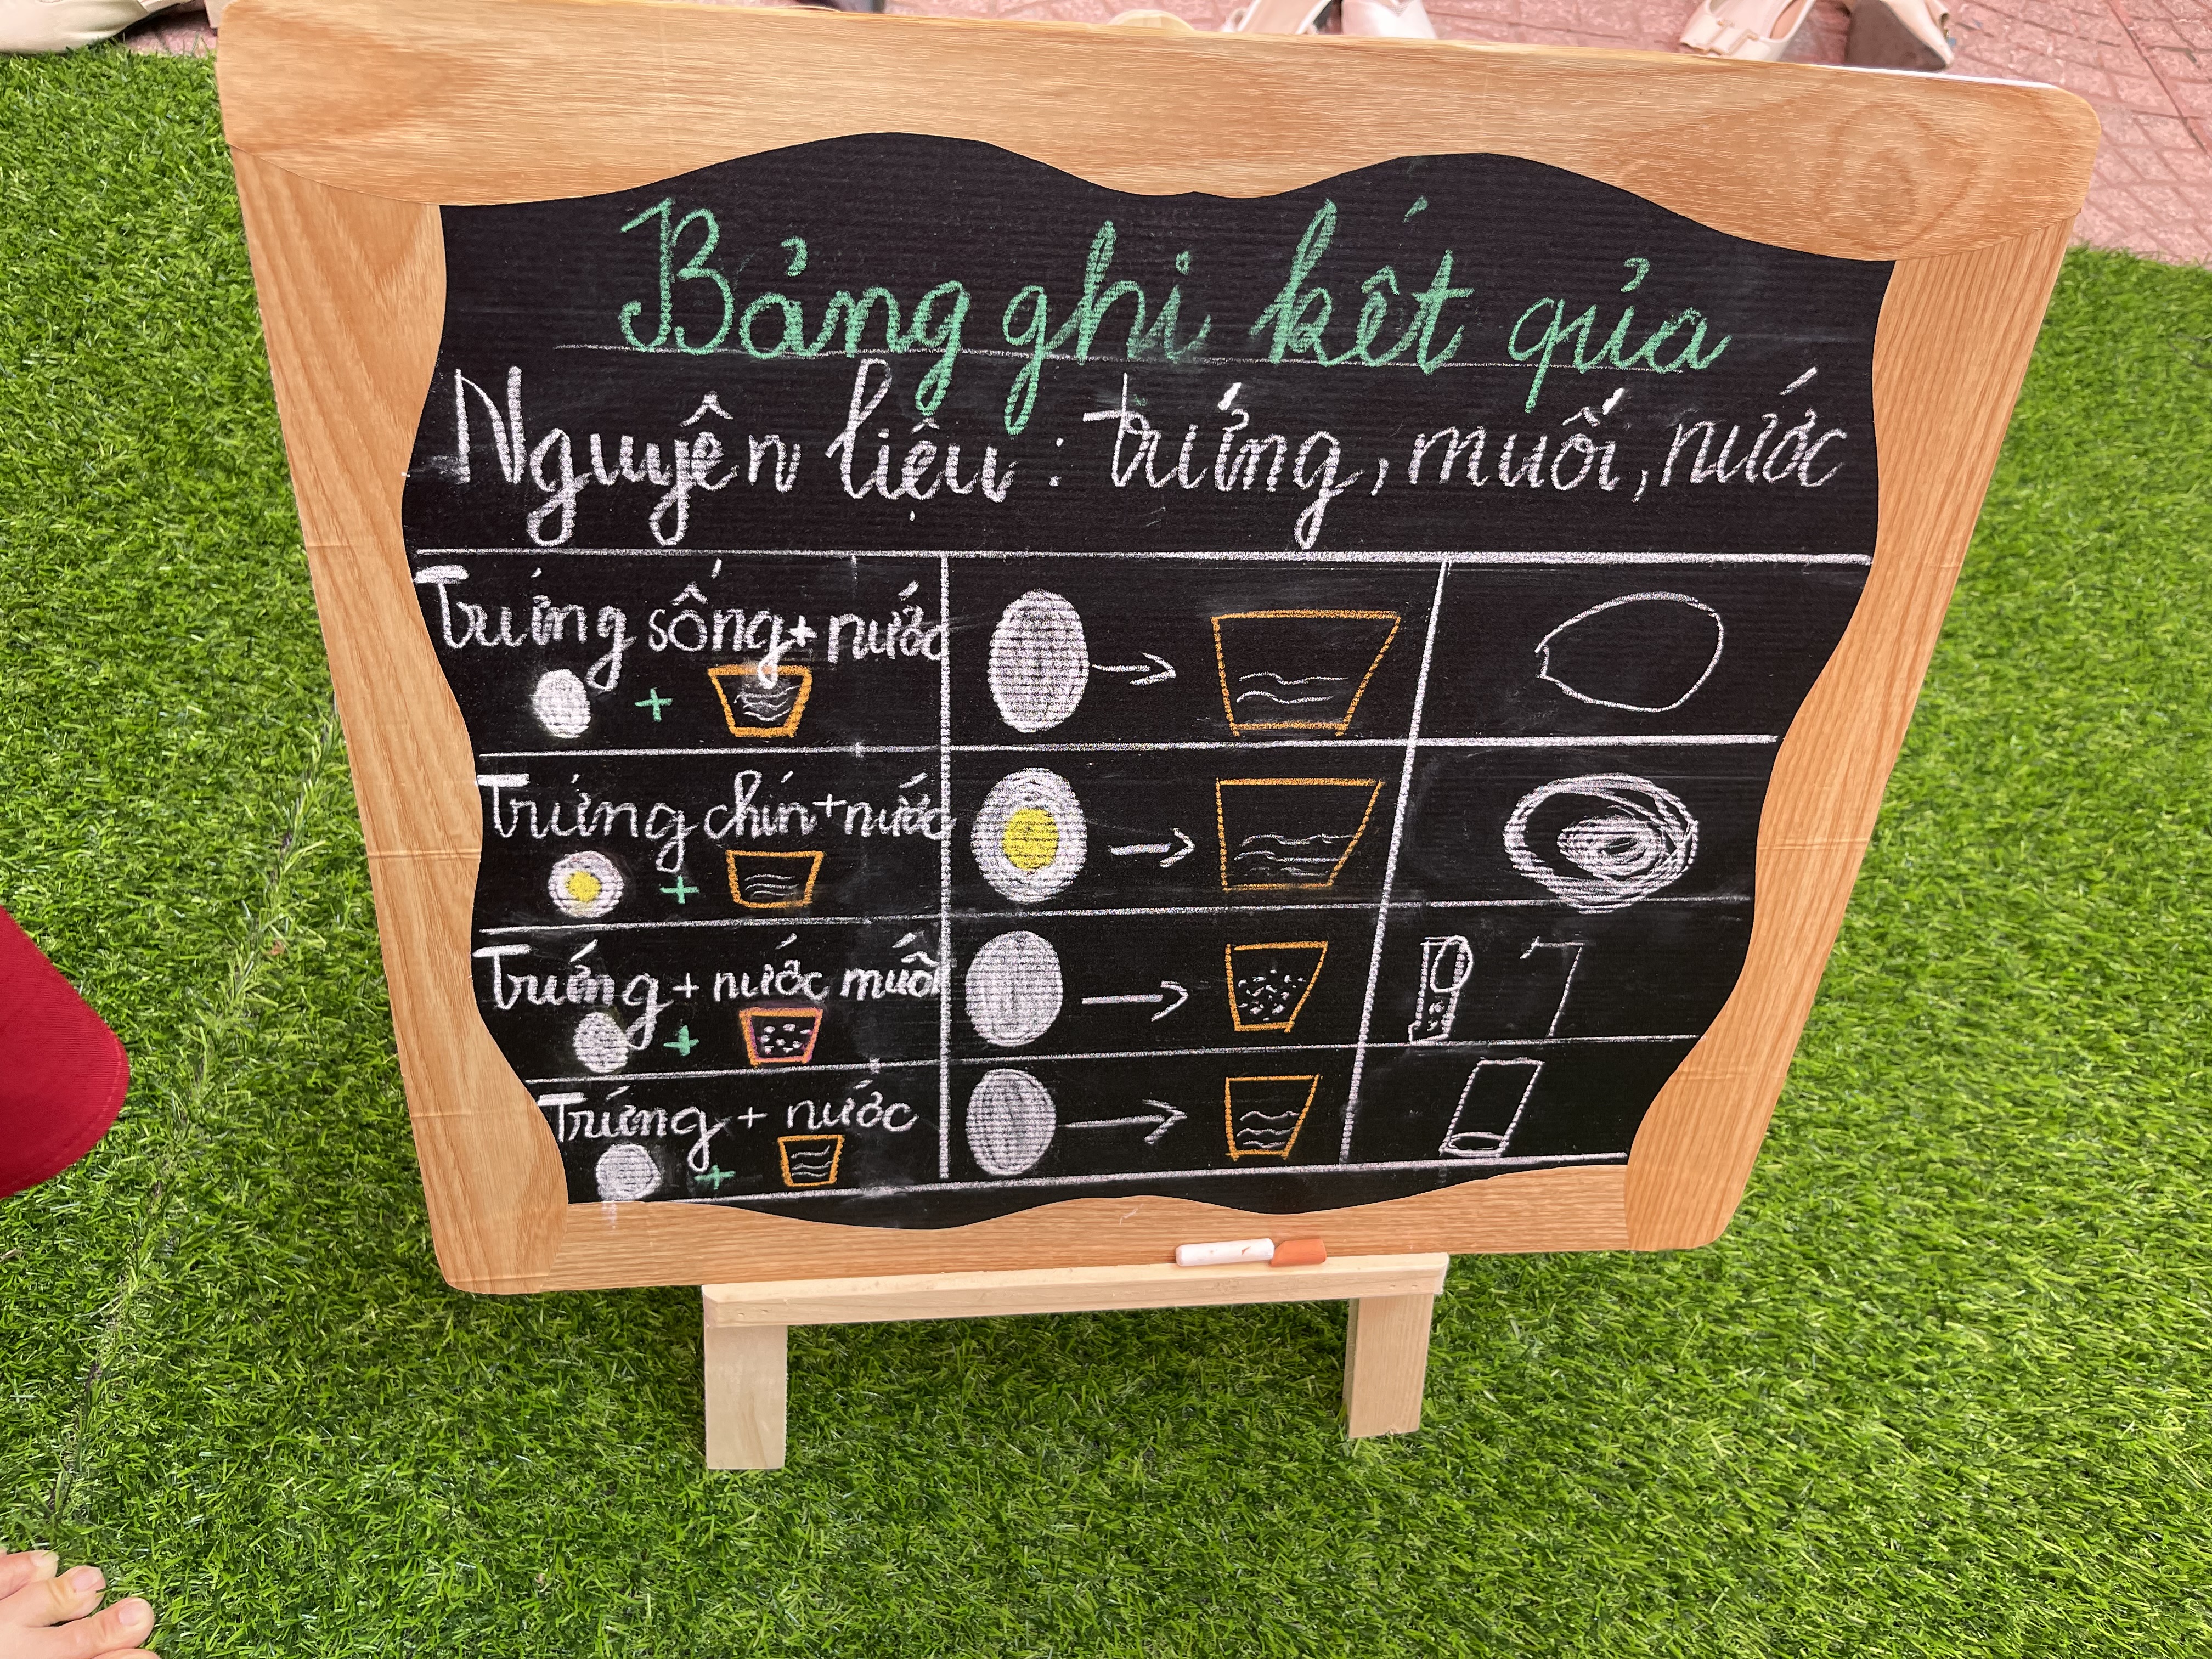 Bảng ghi kết qủa
Nguyên liệu : trứng, muối, nước
Trứng sống + nước
+
Trứng chín + nước
+
Trứng + nước muối
+
Trứng + nước
+